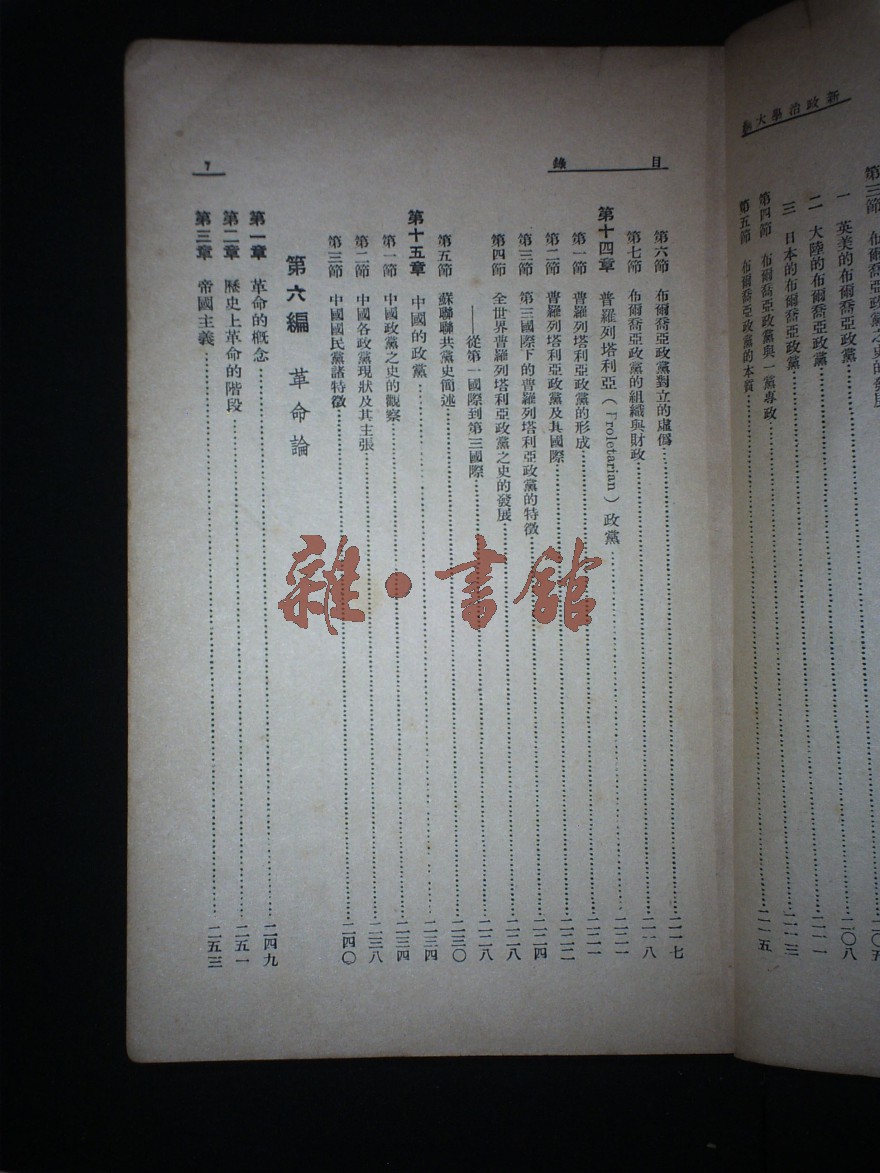 新政治學大綱
第三節 布爾喬亞政黨之史的發展
一 英美的布爾喬亞政黨……二〇八
二 大陸的布爾喬亞政黨……二一一
三 日本的布爾喬亞政黨……二一三
第四節 布爾喬亞政黨與一黨專政
第五節 布爾喬亞政黨的本質……二一五
目錄
7
第六節 布爾喬亞政黨對立的虛僞……二一七
第七節 布爾喬亞政黨的組織與財政……二一八
第十四章 普羅列塔利亞(Proletarian)政黨……二二一
第一節 普羅列塔利亞政黨的形成……二二一
第二節 普羅列塔利亞政黨及其國際……二二二
第三節 第三國際下的普羅列塔利亞政黨的特徵……二二四
第四節 全世界普羅列塔利亞政黨之史的發展……二二八
——從第一國際到第三國際……二二八
第五節 蘇聯聯共黨史簡述……二三〇
第十五章 中國的政黨……二三四
第一節 中國政黨之史的觀察……二三四
第二節 中國各政黨現狀及其主張……二三八
第三節 中國國民黨諸特徵……二四〇
第六編 革命論
第一章 革命的概念……二四九
第二章 歷史上革命的階段……二五一
第三章 帝國主義……二五三
雜·書館